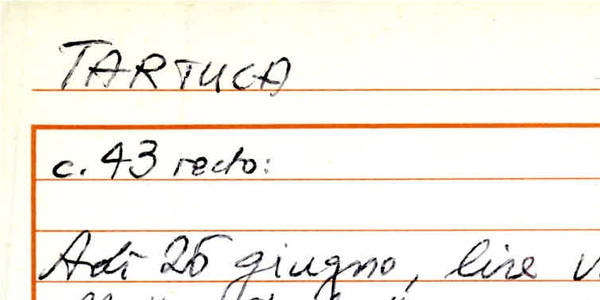 TARTUCA
c. 43 recto:
Adì 25 giugno, lire